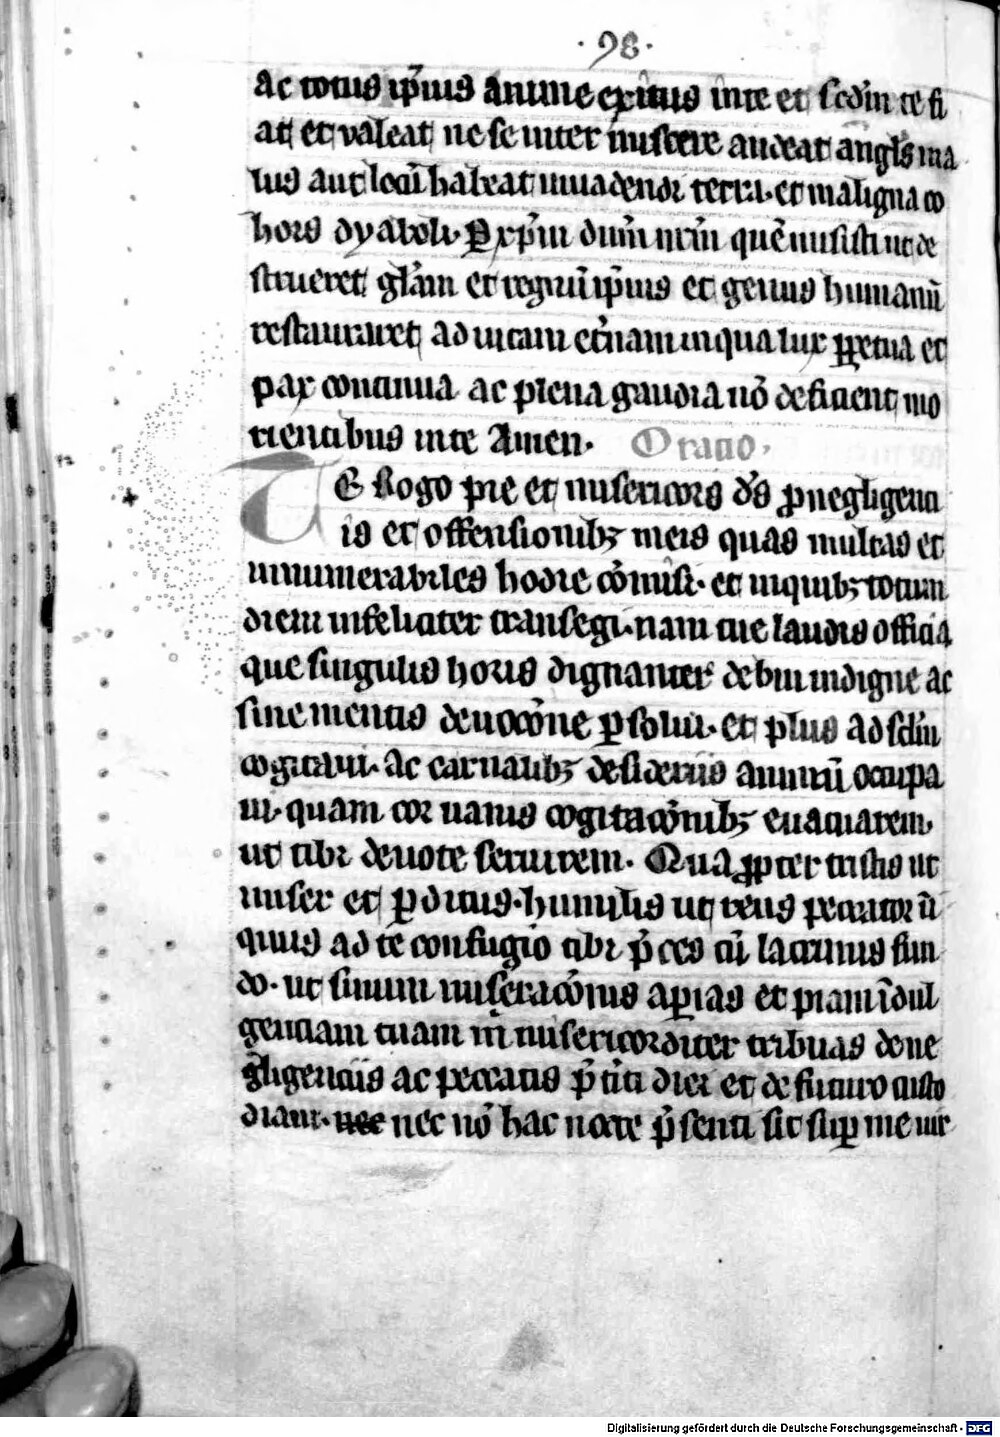 ·98·
ac totus ip̄ius anime exitus inte et scd̄m te fi
at et valeat ne se inter miscere audeat angl̄s ma
lus aut locū habeat inuadendi terra. et maligna co
hors dyaboli. Per xp̄m dn̄m nr̄m quē misisti ut de
strueret gl̄am et regnū ip̄ius et genus humanū
restauraret ad uitam et̄nam inqua lux ꝑpetua et
pax continua ac plena gaudia nō deficient mo
rientibus inte Amen. Oratio.
TE Rogo pie et misericors ds̄ ꝓ negligenti
is et offensionibꝫ meis quas multas et
innumerabiles hodie cōmisi. et inquibꝫ totum
diem infeliciter transegi. nam tue laudis officia
que singulis horis dignanter debui indigne ac
sine mentis deuocōne ꝑsolui. et plus ad scl̄m
cogitaui. ac carnalibꝫ desideriis animū occupa
ui. quam cor uanis cogitacōnibꝫ euacuarem.
ut tibi deuote seruirem. Quaꝓpter tristis ut
miser et ꝑditus. humilis ut reus peccator ini
quus ad te confugio tibi p̄ces cū lacrimis fun
do. ut sinum miseracōnis aꝑias et piam īdul
gentiam tuam m̄ misericorditer tribuas de ne
gligentiis ac peccatis p̄t̄iti diei et de futuro custo
diam. nec nec nō hac nocte p̄senti sit suꝑ me uir
Digitalisierung gefördert durch die Deutsche Forschungsgemeinschaft - DFG